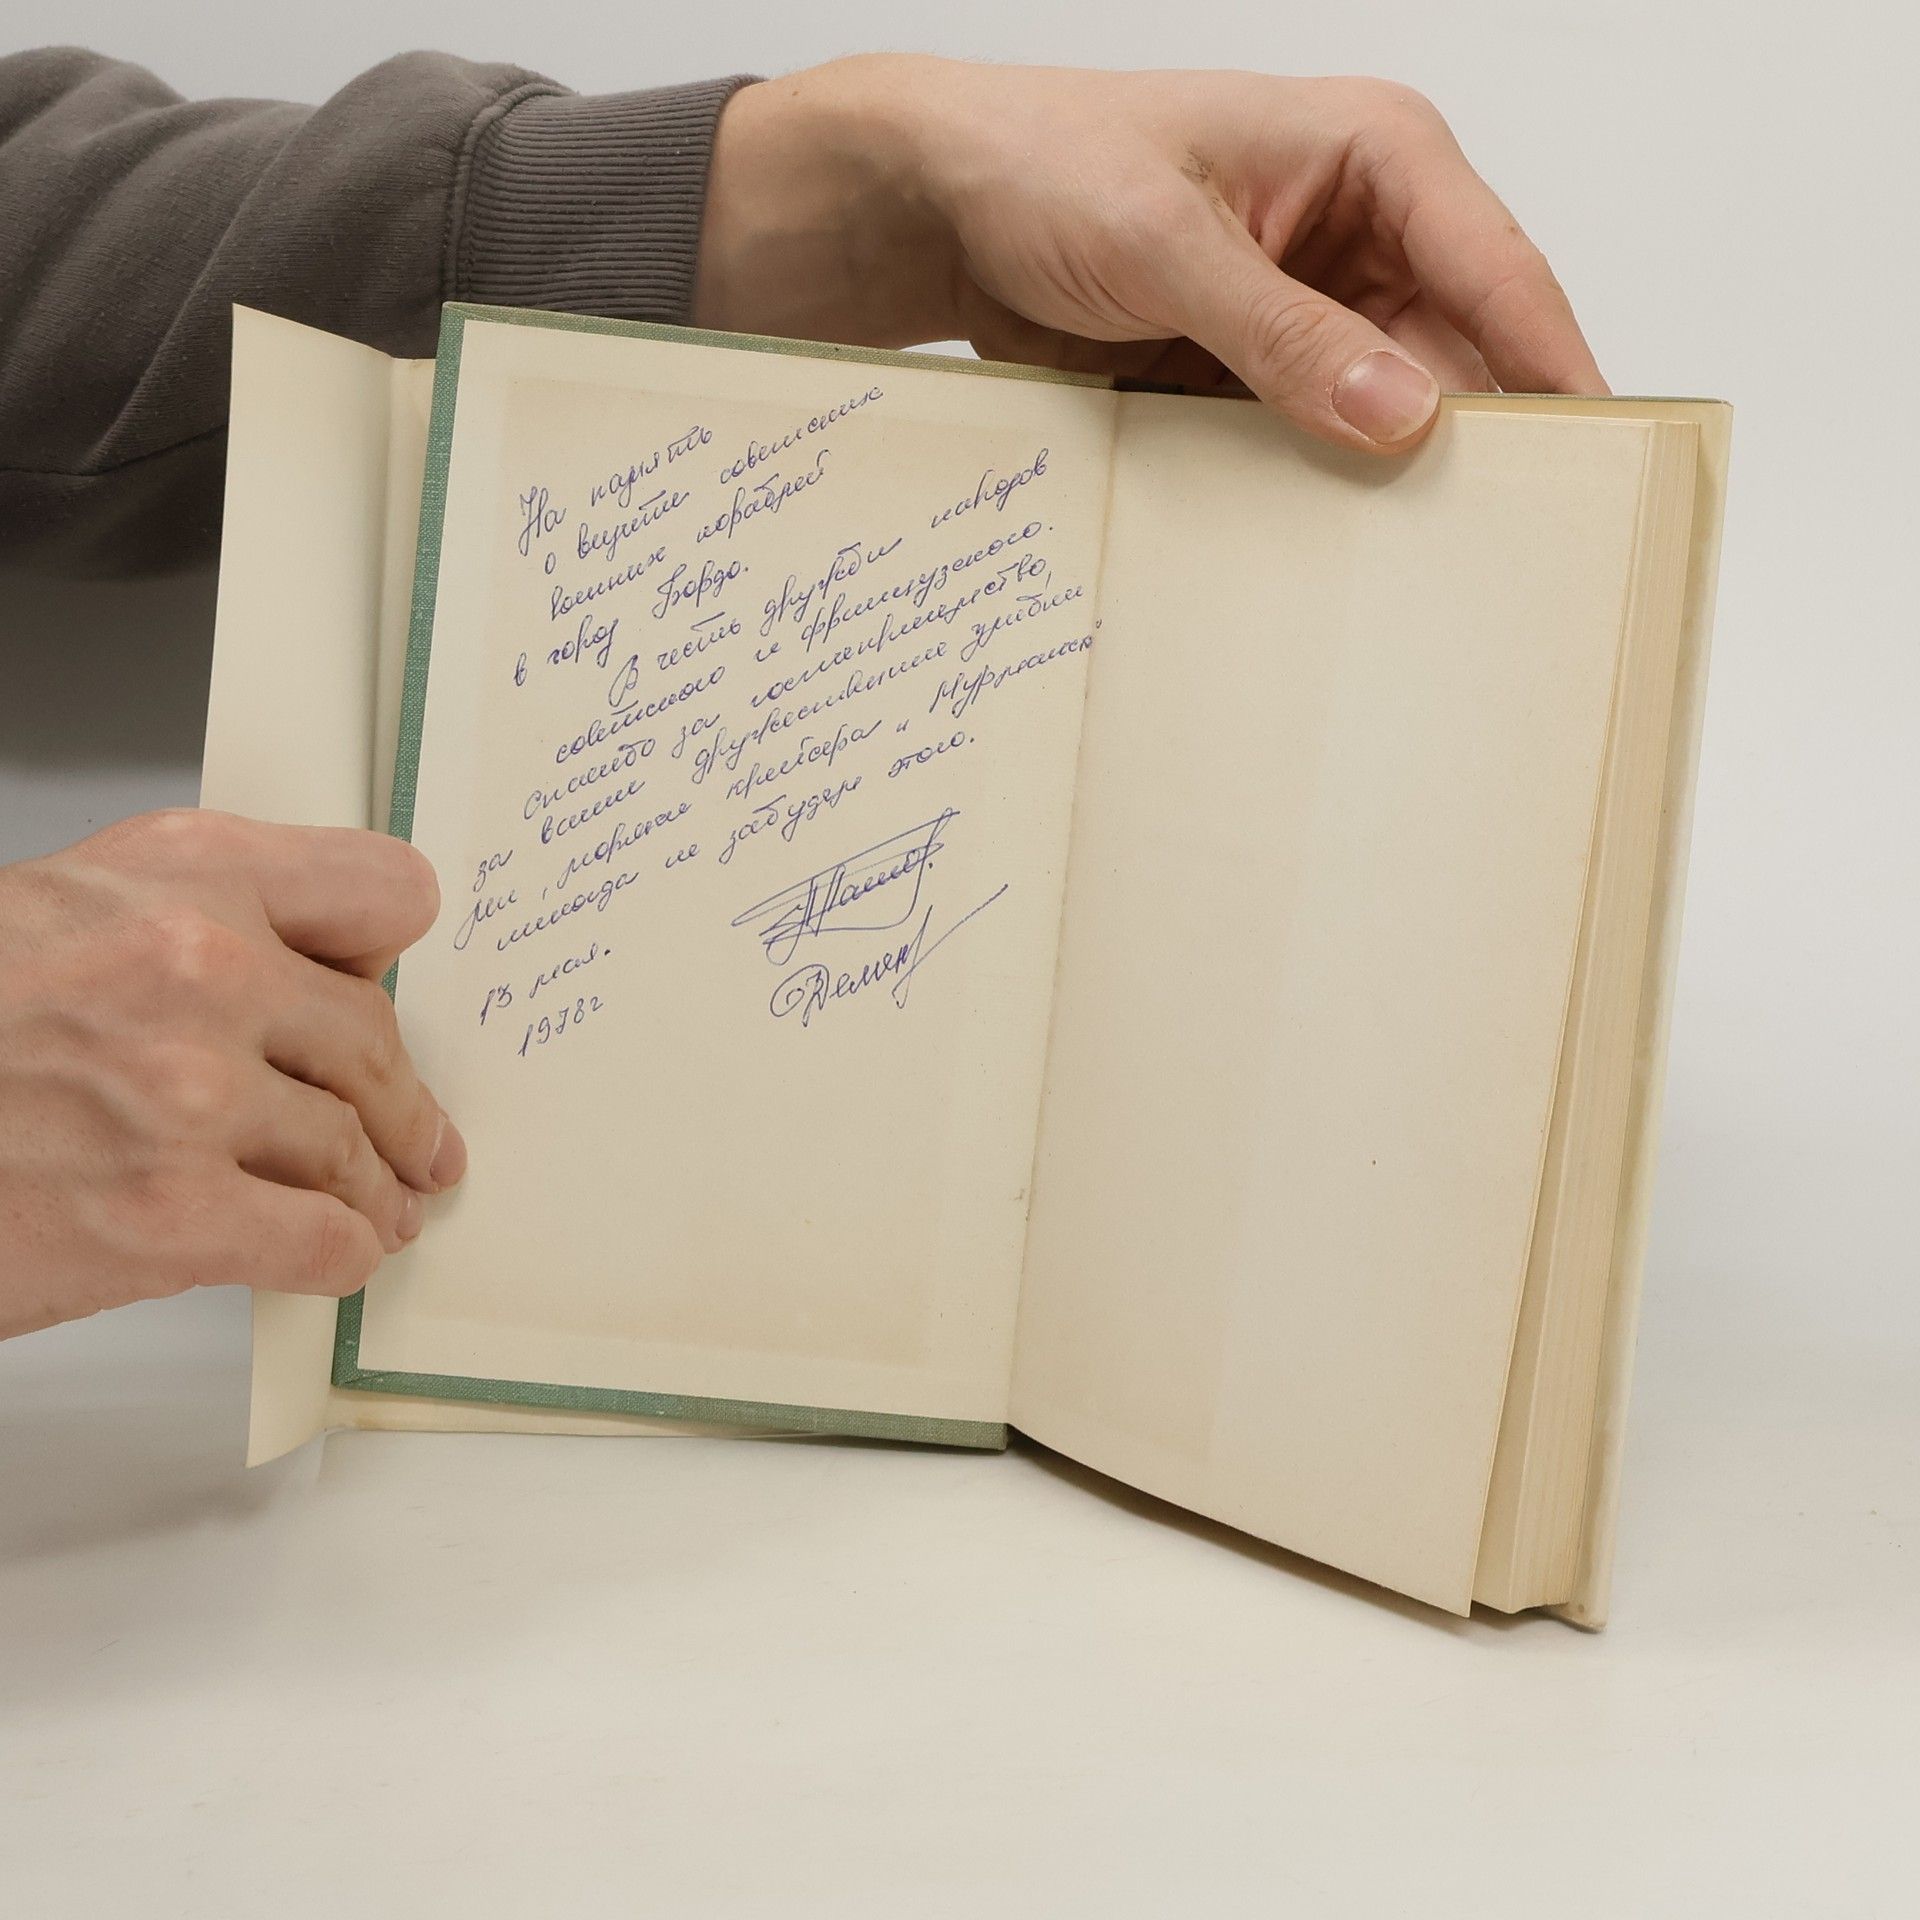 На память
о визите советских
военных кораблей
в город Бордо.
В честь дружбы народов
советского и французского.
Спасибо за гостеприимство,
за ваши дружественные улыбки
мы, моряки крейсера "Мурманск"
никогда не забудем этого.
13 мая.
1978г